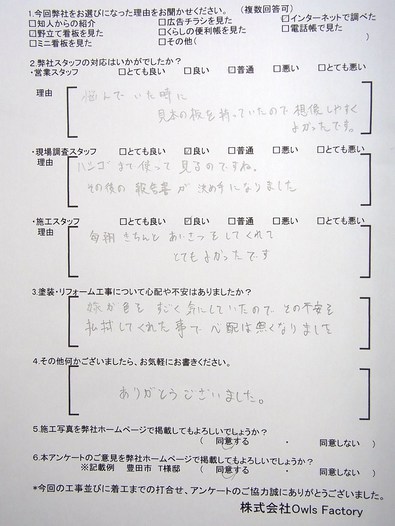 1.今回弊社をお選びになった理由をお聞かせください。　(複数回答可)
□知人からの紹介　□広告チラシを見た　□インターネットで調べた
□野立て看板を見た　□くらしの便利帳を見た　□電話帳で見た
□ミニ看板を見た　□その他(　)
2.弊社スタッフの対応はいかがでしたか?
・営業スタッフ　□とても良い　□良い　□普通　□悪い　□とても悪い
理由
悩んでいた時に
見本の板を持っていたので想像しやすく
よかったです。
・現場調査スタッフ　□とても良い　☑良い　□普通　□悪い　□とても悪い
理由
ハシゴまで使って見るのですね。
その後の報告書が決め手になりました
・施工スタッフ　□とても良い　☑良い　□普通　□悪い　□とても悪い
理由
毎朝きちんとあいさつをしてくれて
とてもよかったです
3.塗装・リフォーム工事について心配や不安はありましたか?
旅が色をすごく気にしていたので その不安を
払拭してくれた事で心配は無くなりました
4.その他何かございましたら、お気軽にお書きください。
ありがとうございました。
5.施工写真を弊社ホームページで掲載してもよろしいでしょうか?
(　同意する　・　同意しない　)
6.本アンケートのご意見を弊社ホームページで掲載してもよろしいでしょうか?
※記載例　豊田市　T様邸　(　同意する　・　同意しない　)
*今回の工事並びに着工までの打合せ、アンケートのご協力誠にありがとうございました。
株式会社Owls Factory